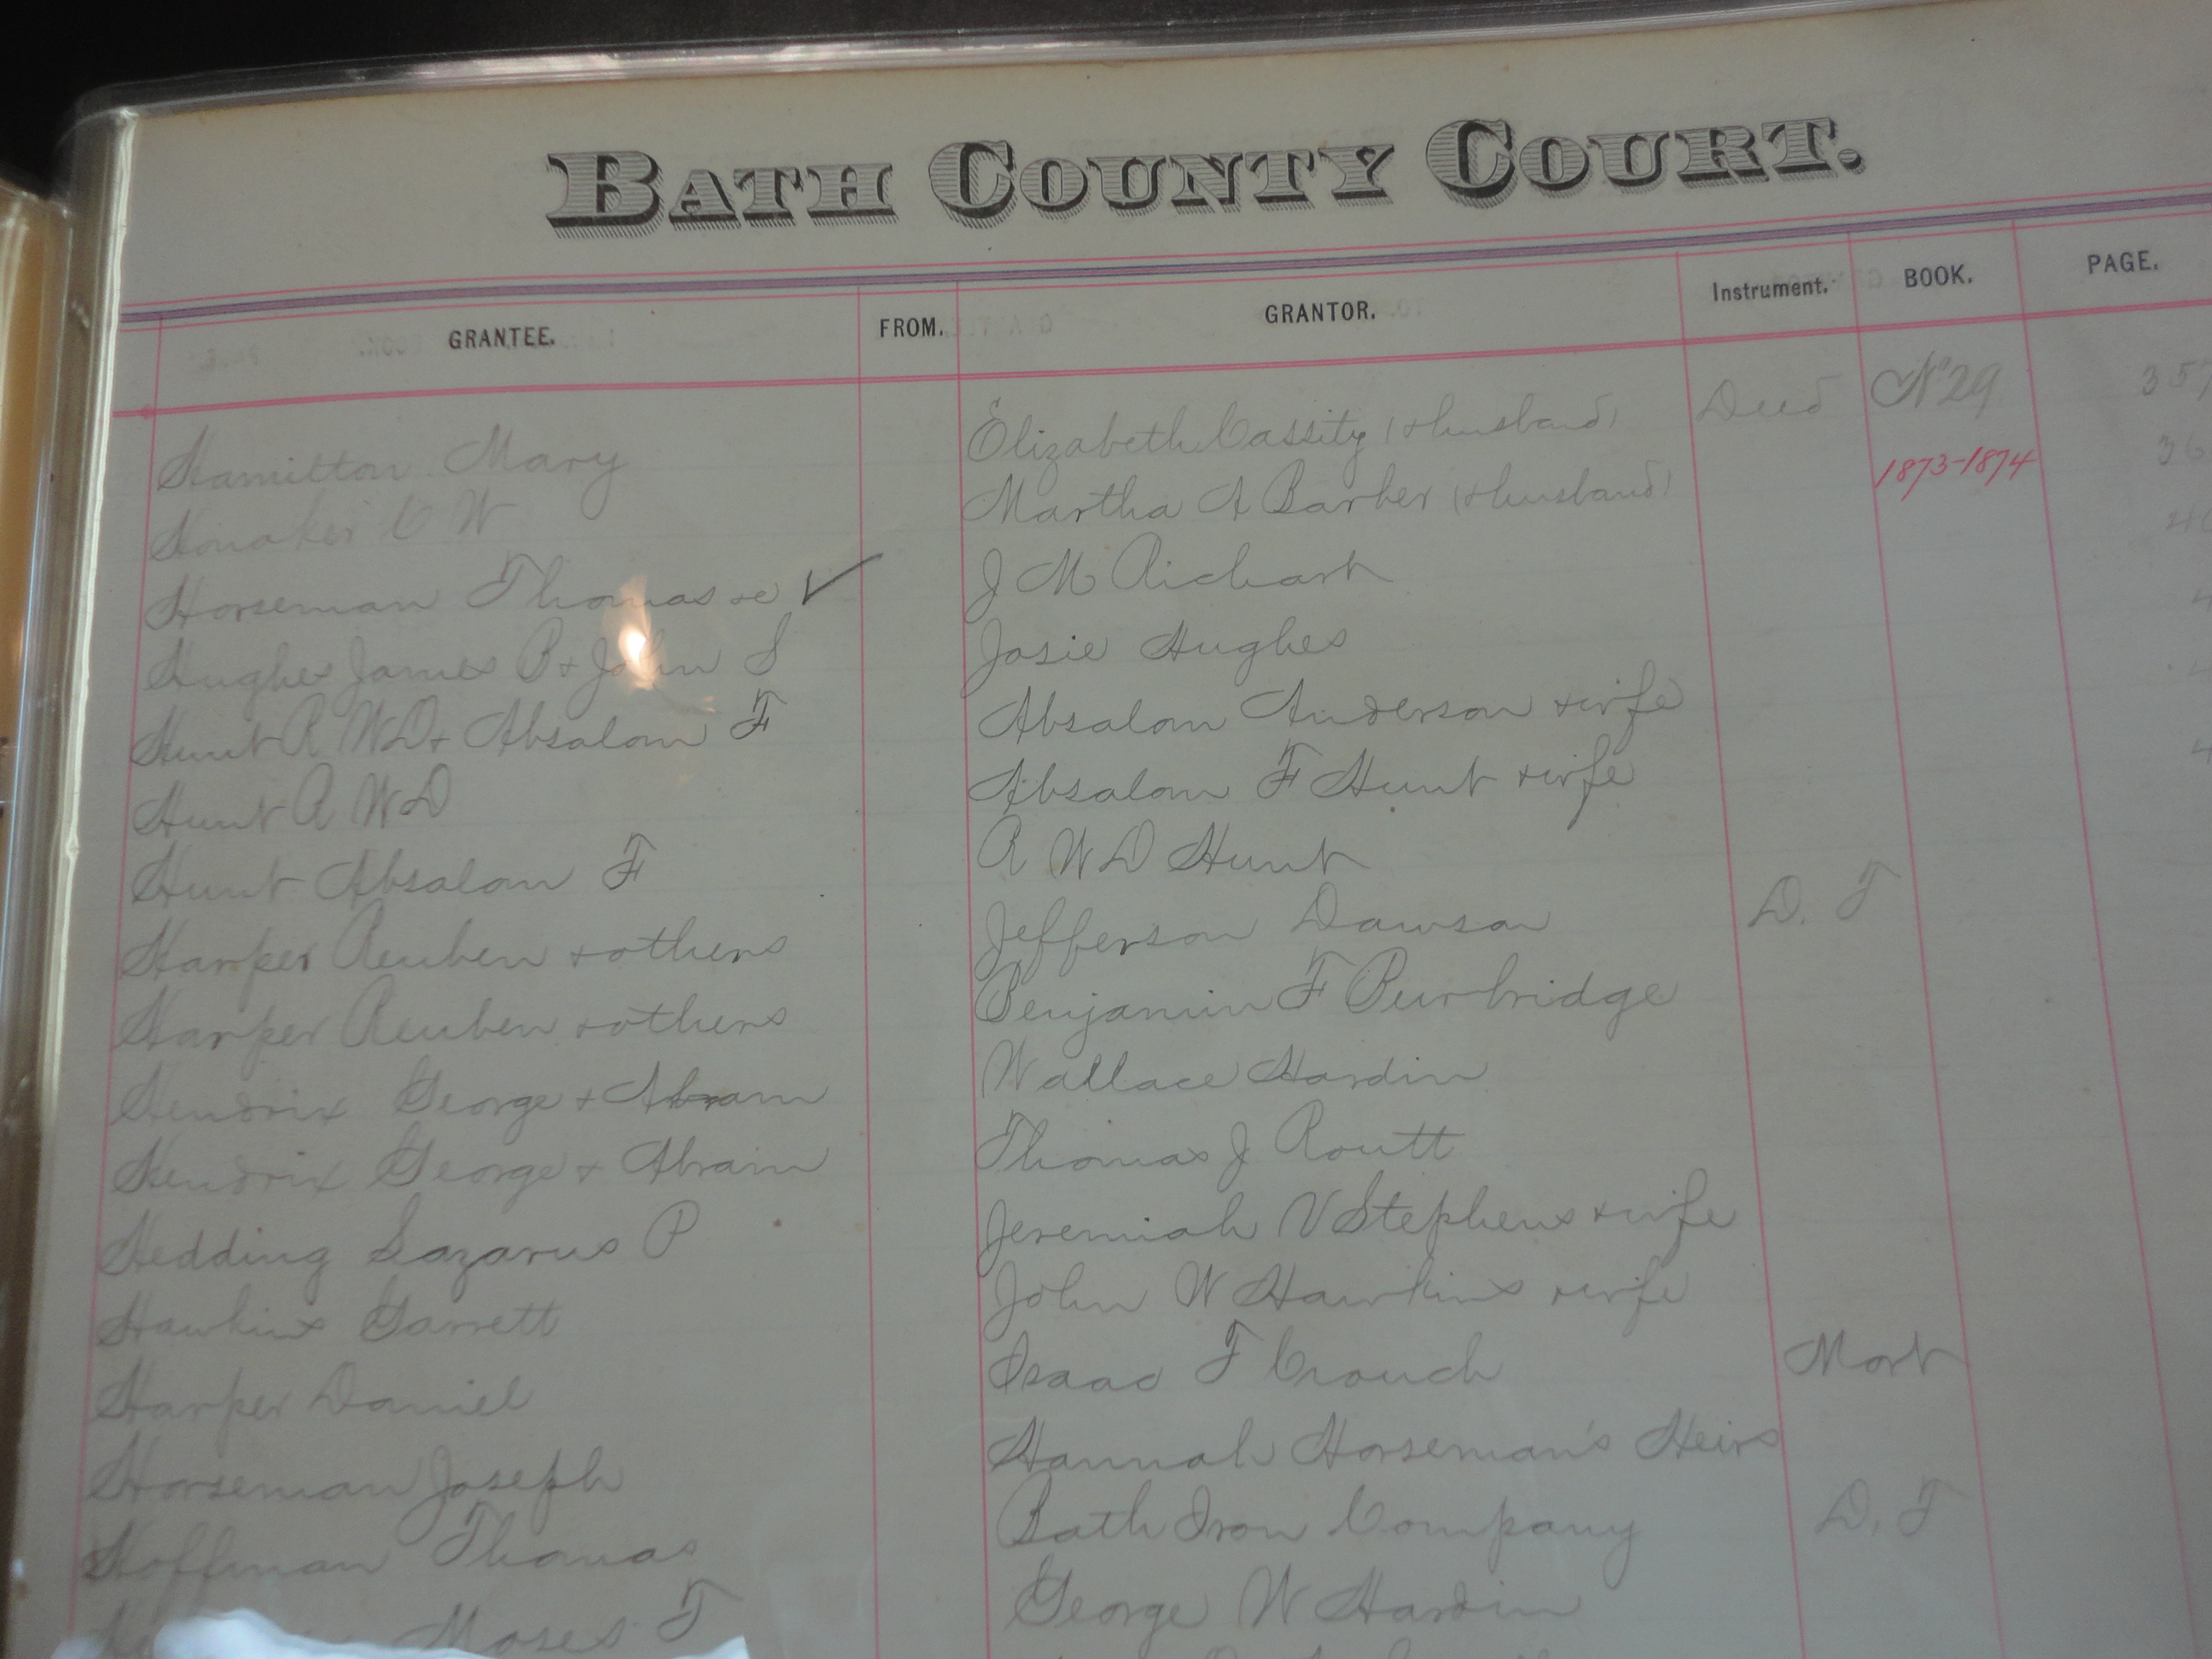 BATH COUNTY COURT.
GRANTEE. FROM. GRANTOR. Instrument. BOOK. PAGE.
Hamilton Mary Elizabeth Cassity (& husband) Deed No 29 357
Honaker C W Martha A Barber (& husband) 1873-1874 36
Horseman Thomas &c ✓ J M Richart 40
Hughes James P & John S Josie Hughes 4
Hunt R W D & Absalom F Absalom Anderson & wife 4
Hunt R W D Absalom F Hunt & wife 4
Hunt Absalom F R W D Hunt
Harper Reuben & others Jefferson Dawson D. T
Harper Reuben & others Benjamin F Burbridge
Hendrix George & Abram Wallace Hardin
Hendrix George & Abram Thomas J Routt
Hedding Lazarus P Jeremiah V Stephens & wife
Hawkins Garrett John W Hawkins & wife
Harper Daniel Isaac F Crouch Mort
Horseman Joseph Hannah Horseman's Heirs
Hoffman Thomas Bath Iron Company D. T
Moses T George W Hardin